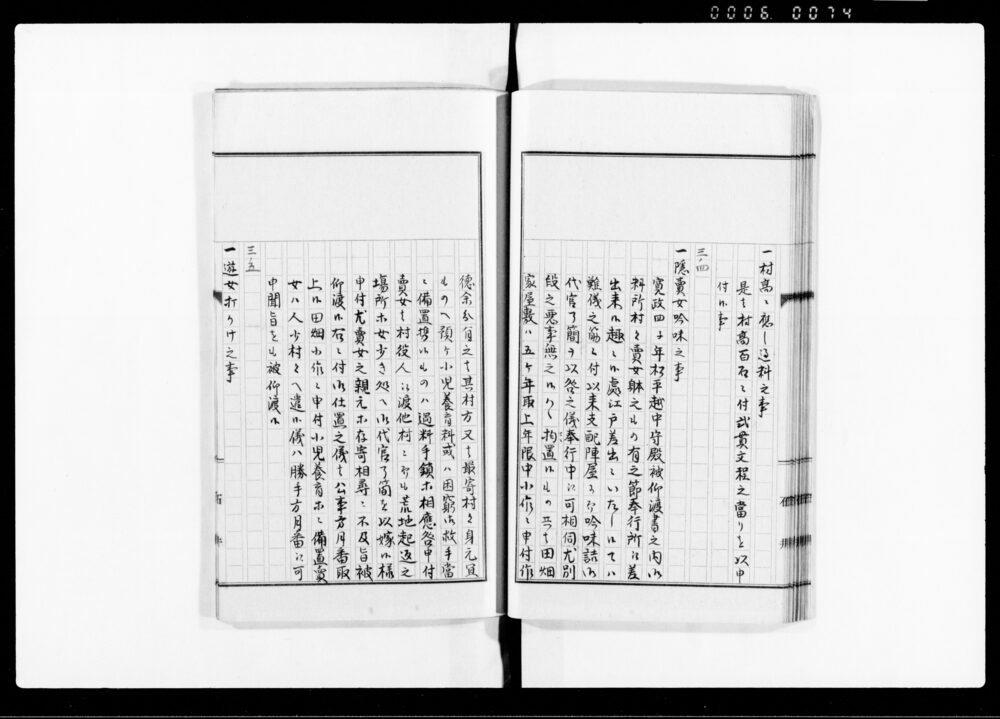 0006. 0074
一村高ニ応し過料之事
是ハ村高百石ニ付弐貫文程之当りを以申
付候事
三ノ四
一隠賣女吟味之事
寛政四子年松平越中守殿被仰渡書之内御
料所村々賣女躰之もの有之節奉行所江差
出来候趣ニ候處江戸差出しいたし候てハ
難儀之筋ニ付以来支配陣屋ニ而吟味詰御
代官了簡ヲ以咎之儀奉行中江可相伺尤別
段之悪事無之候ハヽ拘置候もの共田畑
家屋敷ハ五ヶ年取上年限中小作ニ申付作
徳余分有之ハ其村方又ハ最寄村々身元宜
ものへ預ヶ小児養育料或ハ困窮御救手當
ニ備置携候ものハ過料手鎖ホ相應咎申付
賣女ハ村役人江渡他村ニ而も荒地起返之
場所ホ女少き処へ御代官了簡を以嫁候様
申付尤賣女之親元ホ存寄相尋ニ不及旨被
仰渡候右ニ付御仕置之儀ハ公事方月番取
上候田畑小作ニ申付小児養育ホニ備置賣
女ハ人少村々へ遣候儀ハ勝手方月番江可
申聞旨をも被仰渡候
三ノ五
一遊女打うけ之事